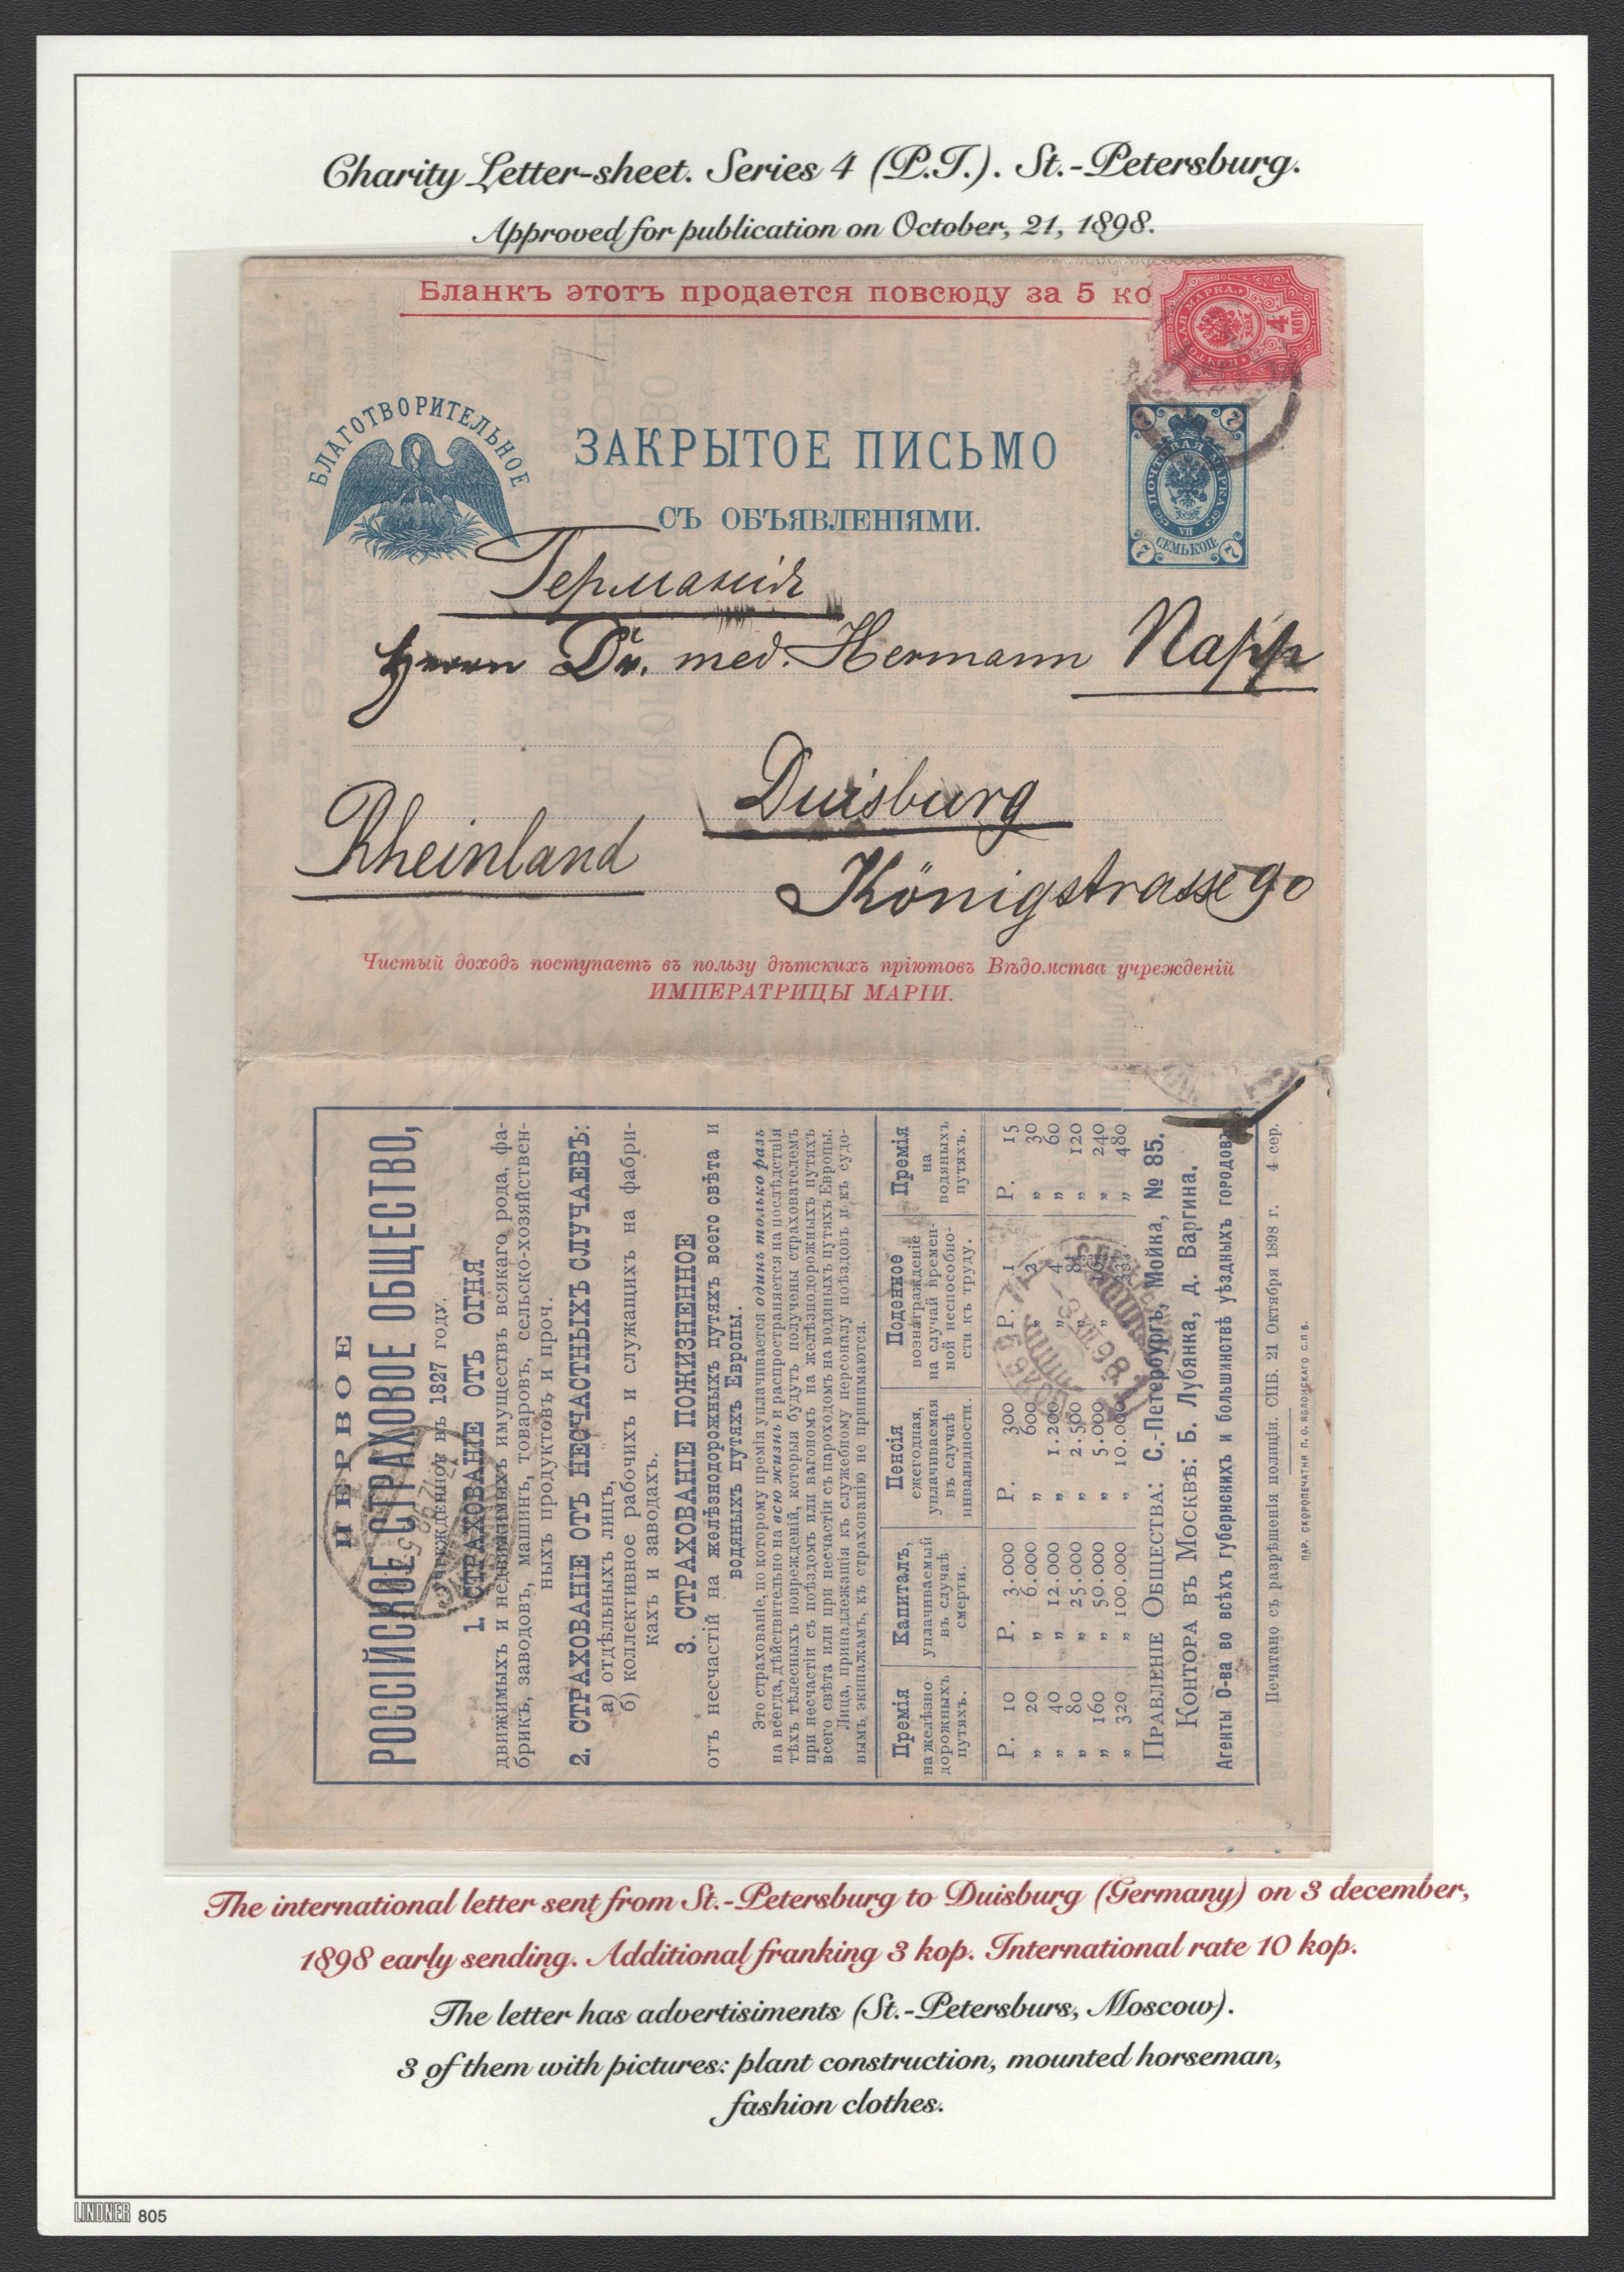 Charity Letter-sheet. Series 4 (P.T.). St.-Petersburg.
Approved for publication on October, 21, 1898.
Бланкъ этотъ продается повсюду за 5 ко
ПОЧТОВАЯ МАРКА
4
БЛАГОТВОРИТЕЛЬНОЕ
ЗАКРЫТОЕ ПИСЬМО
СЪ ОБЪЯВЛЕНІЯМИ.
7 7
ПОЧТОВАЯ МАРКА
VII
СЕМЬ КОП.
7 7
Германія
Herrn Dr. med. Hermann Napp
Duisburg
Rheinland
Königstrasse 90
Чистый доходъ поступаетъ въ пользу дѣтскихъ пріютовъ Вѣдомства учрежденій
ИМПЕРАТРИЦЫ МАРІИ.
ПЕРВОЕ
РОССІЙСКОЕ СТРАХОВОЕ ОБЩЕСТВО,
УЧРЕЖДЕННОЕ ВЪ 1827 году.
1. СТРАХОВАНІЕ ОТЪ ОГНЯ
движимыхъ и недвижимыхъ имуществъ всякаго рода, фа-
брикъ, заводовъ, машинъ, товаровъ, сельско-хозяйствен-
ныхъ продуктовъ и проч.
2. СТРАХОВАНІЕ ОТЪ НЕСЧАСТНЫХЪ СЛУЧАЕВЪ:
а) отдѣльныхъ лицъ,
б) коллективное рабочихъ и служащихъ на фабри-
кахъ и заводахъ.
3. СТРАХОВАНІЕ ПОЖИЗНЕННОЕ
отъ несчастій на желѣзнодорожныхъ путяхъ всего свѣта и
водяныхъ путяхъ Европы.
Это страхованіе, по которому премія уплачивается одинъ только разъ
на всегда, дѣйствительно на всю жизнь и распространяется на послѣдствія
тѣхъ тѣлесныхъ поврежденій, которыя будутъ получены страхователемъ
при несчастіи съ поѣздомъ или вагономъ на желѣзнодорожныхъ путяхъ
всего свѣта или при несчастіи съ пароходомъ на водяныхъ путяхъ Европы.
Лица, принадлежащія къ служебному персоналу поѣздовъ и къ судо-
вымъ экипажамъ, къ страхованію не принимаются.
Премія на желѣзно-дорожныхъ путяхъ. Капиталъ, уплачиваемый въ случаѣ смерти. Пенсія ежегодная, уплачиваемая въ случаѣ инвалидности. Поденное вознагражденіе на случай времен-ной неспособно-сти къ труду. Премія на водяныхъ путяхъ.
Р. 10 Р. 3.000 Р. 300 Р. 1 Р. 15
„ 20 „ 6.000 „ 600 „ 2 „ 30
„ 40 „ 12.000 „ 1.200 „ 4 „ 60
„ 80 „ 25.000 „ 2.500 „ „ 120
„ 160 „ 50.000 „ 5.000 „ „ 240
„ 320 „ 100.000 „ 10.000 „ „ 480
ПРАВЛЕНІЕ ОБЩЕСТВА: С.-Петербургъ, Мойка, № 85.
КОНТОРА ВЪ МОСКВѢ: Б. Лубянка, д. Варгина.
Агенты О-ва во всѣхъ губернскихъ и большинствѣ уѣздныхъ городовъ
Печатано съ разрѣшенія полиціи. СПБ. 21 Октября 1898 г. 4 сер.
ПАР. СКОРОПЕЧАТНЯ П. О. ЯБЛОНСКАГО С.П.Б.
The international letter sent from St.-Petersburg to Duisburg (Germany) on 3 december,
1898 early sending. Additional franking 3 kop. International rate 10 kop.
The letter has advertisiments (St.-Petersburs, Moscow).
3 of them with pictures: plant construction, mounted horseman,
fashion clothes.
LINDNER 805